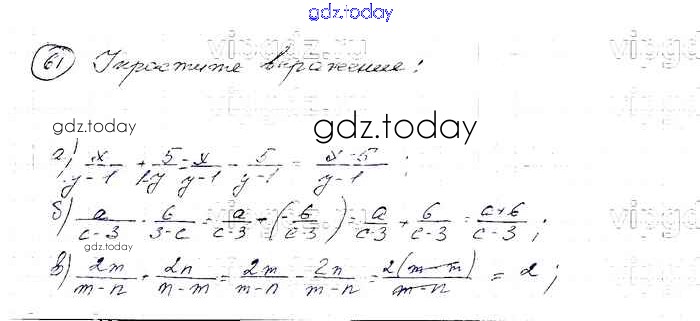 gdz.today
61 Упростите выражение:
gdz.today
gdz.today
а) x/(y-1) + 5/(1-y) = x/(y-1) - 5/(y-1) = (x-5)/(y-1) ;
б) a/(c-3) - 6/(3-c) = a/(c-3) - (-6/(c-3)) = a/(c-3) + 6/(c-3) = (a+6)/(c-3) ;
gdz.today
в) 2m/(m-n) + 2n/(n-m) = 2m/(m-n) - 2n/(m-n) = 2(m-n)/(m-n) = 2 ;